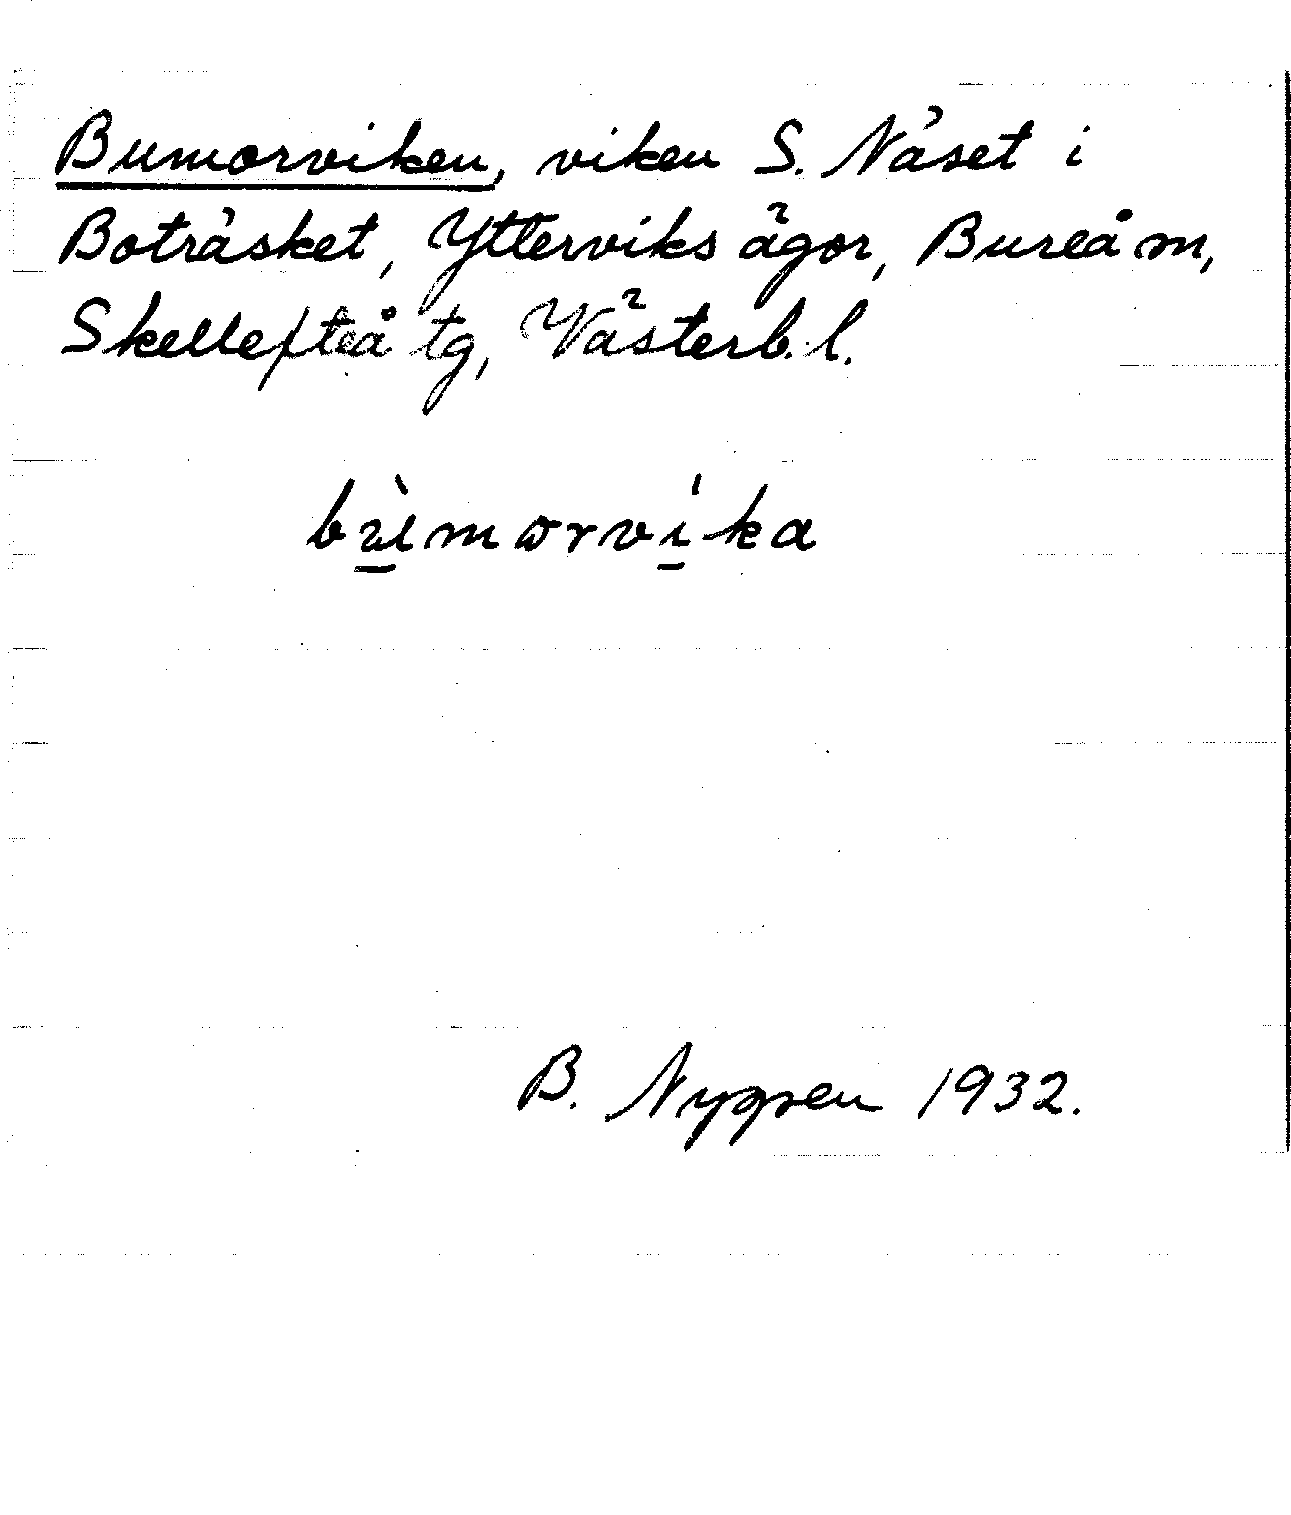 Bumorviken, viken S. Näset i
Boträsket, Ytterviks ägor, Bureå m,
Skellefteå tg, Västerb. l.
bù̲morví̲ka
B. Nygren 1932.